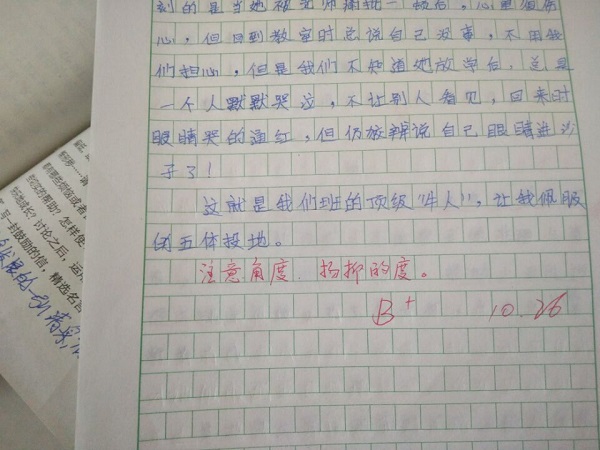 刻的是当她被老师痛批一顿后，心里很伤
心，但回到教室时总说自己没事，不用我
们担心，但是我们不知道她放学后，总是
一个人默默哭泣，不让别人看见，回来时
眼睛哭的通红，但仍放辩说自己眼睛进沙
子了！
这就是我们班的顶级“牛人”，让我佩服
的五体投地。
注意角度，扬抑的度。
B+ 10.26
成长?讨论之后，运
写一封鼓励的信，精选名言